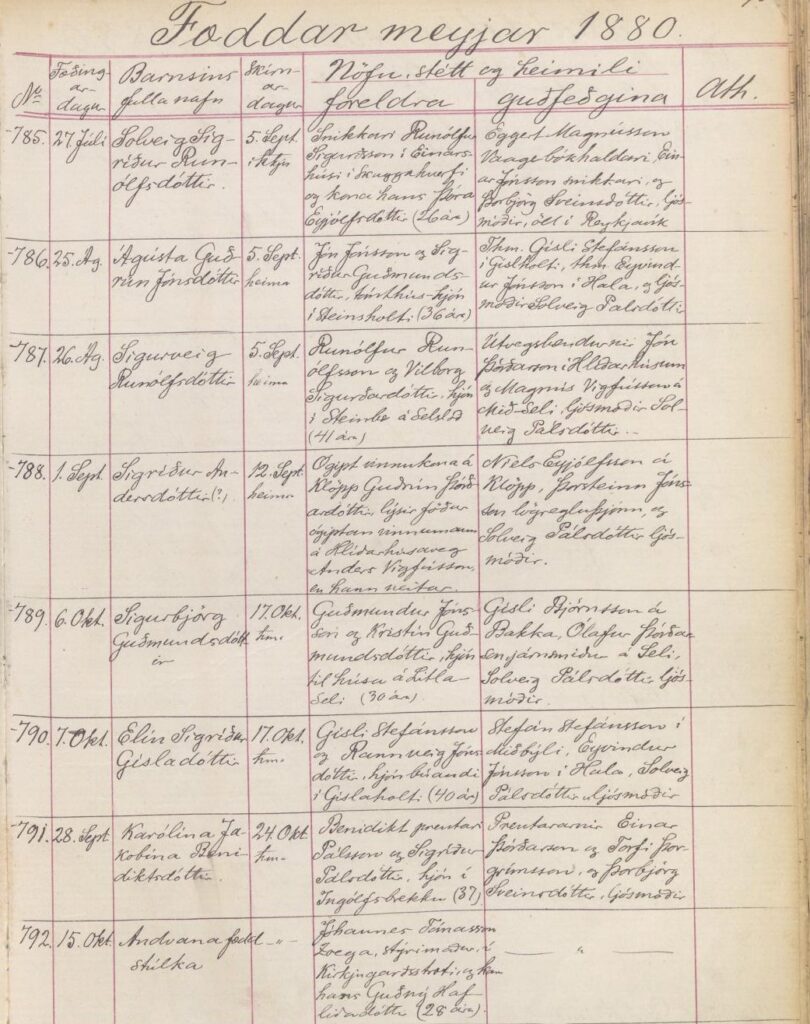 Fæddar meyjar 1880.
No
Fæðing-
ar-
dagur
Barnsins
fulla nafn
Skírn-
ar-
dagur
Nöfn, stétt og heimili
foreldra
guðfeðgina
Ath.
785.
27 Júlí
Solveig Sig-
ríður Run-
ólfsdóttir.
5. Sept.
í kkju
Snikkari Runólfur
Sigurðsson í Einars-
húsi í Skuggahverfi
og kona hans Þóra
Eyjólfsdóttir (26 ára)
Eggert Magnússon
Vaage bókhaldari, Ein-
ar Jónsson snikkari, og
Þorbjörg Sveinsdóttir, ljós-
móðir, öll í Reykjavík
786.
25. Ág.
Ágústa Guð-
rún Jónsdóttir
5. Sept.
heima
Jón Jónsson og Sig-
ríður Guðmunds-
dóttir, tómthús-hjón
í Steinsholti (36 ára)
Thm. Gísli Stefánsson
í Gíslholti, thm. Eyvind-
ur Jónsson í Hala, og ljós-
móðir Solveig Pálsdóttir
787.
26. Ág.
Sigurveig
Runólfsdóttir
5. Sept.
heima
Runólfur Run-
ólfsson og Vilborg
Sigurðardóttir, hjón
í Steinbæ á Selslóð
(41 ára)
Útvegsbendurnir Jón
Þórðarson í Hlíðarhúsum
og Magnús Vigfússon á
Mið-Seli, ljósmóðir Sol-
veig Pálsdóttir.
788.
1. Sept.
Sigríður An-
dersdóttir (?).
12. Sept.
heima
Ógipt vinnukona á
Klöpp Guðrún Þórð-
ardóttir, lýsir föður
ógiptan vinnumann
á Hlíðarhúsaveg
Anders Vigfússon,
en hann neitar.
Niels Eyjólfsson á
Klöpp, Þorsteinn Jóns-
son lögregluþjónn, og
Solveig Pálsdóttir ljós-
móðir.
789.
6. Okt.
Sigurbjörg
Guðmundsdótt-
ir
17. Okt.
hm.
Guðmundur Jóns-
son og Kristín Guð-
mundsdóttir, hjón
til húsa á Litla-
Seli (30 ára)
Gísli Björnsson á
Bakka, Ólafur Þórðar-
son járnsmiður á Seli,
Solveig Pálsdóttir ljós-
móðir.
790.
7. Okt.
Elín Sigríður
Gísladóttir
17. Okt.
hm.
Gísli Stefánsson
og Rannveig Jóns-
dóttir, hjón búandi
í Gíslaholti (40 ára)
Stefán Stefánsson í
Miðbýli, Eyvindur
Jónsson í Hala, Solveig
Pálsdóttir ljósmóðir
791.
28. Sept
Karólína Ja-
kobína Beni-
diktsdóttir
24. Okt
hm.
Benidikt prentari
Pálsson og Sigríður
Pálsdóttir, hjón í
Ingólfsbrekku (37)
Prentararnir Einar
Þórðarson og Torfi Þor-
grímsson, og Þorbjörg
Sveinsdóttir, ljósmóðir
792.
15. Okt.
Andvana fædd
stúlka
- " -
Jóhannes Tómasson
Zoega, stýrimaður, í
Kirkjugarðsstræti, og kona
hans Guðný Haf-
liðadóttir (28 ára)
— " —